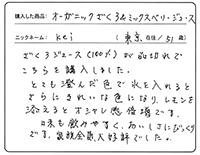 購入した商品: オーガニックざくろ&ミックスベリージュース
ニックネーム: Kei ( 東京 在住/51歳)
ざくろジュース(100%)が品切れで
こちらを購入しました。
とても澄んだ色で氷を入れると
さらにきれいな色になり、レモンを
添えるとオシャレ感倍増です。
味も飲みやすく、おいしさにびっくり
です。家族全員大好評でした。